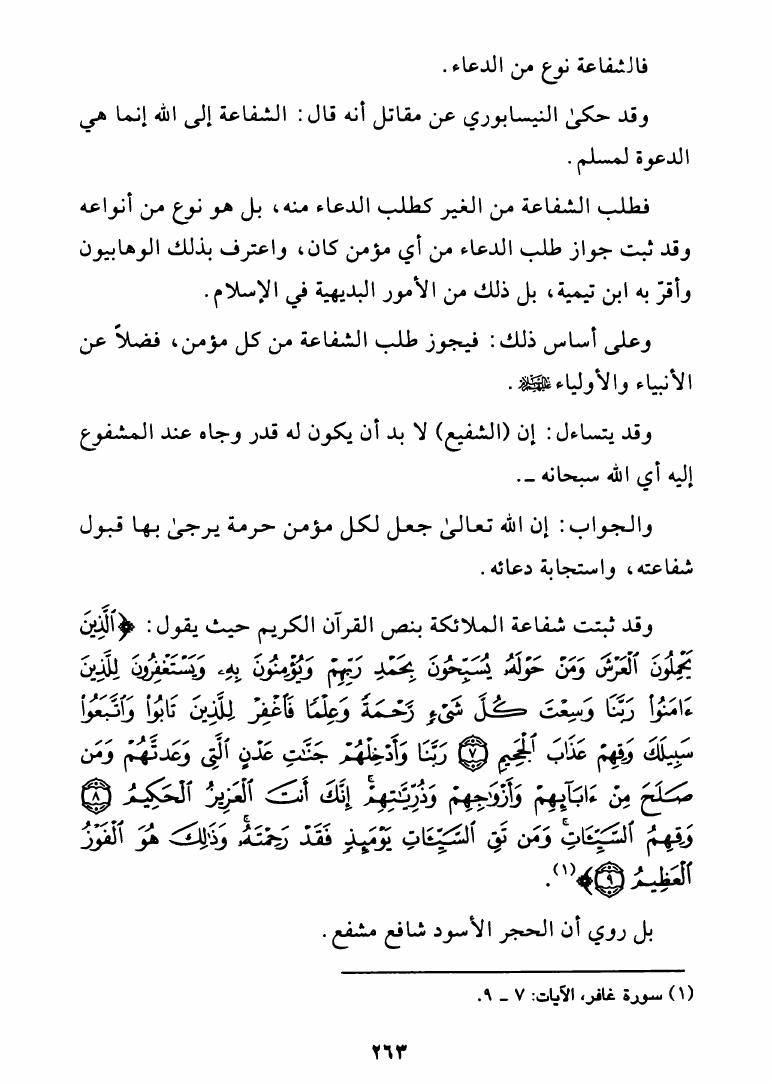 فالشفاعة نوع من الدعاء.
وقد حكىٰ النيسابوري عن مقاتل أنه قال: الشفاعة إلى الله إنما هي
الدعوة لمسلم.
فطلب الشفاعة من الغير كطلب الدعاء منه، بل هو نوع من أنواعه
وقد ثبت جواز طلب الدعاء من أي مؤمن كان، واعترف بذلك الوهابيون
وأقرّ به ابن تيمية، بل ذلك من الأمور البديهية في الإسلام.
وعلى أساس ذلك: فيجوز طلب الشفاعة من كل مؤمن، فضلاً عن
الأنبياء والأولياء عليهم السلام.
وقد يتساءل: إن (الشفيع) لا بد أن يكون له قدر وجاه عند المشفوع
إليه أي الله سبحانه -.
والجواب: إن الله تعالىٰ جعل لكل مؤمن حرمة يرجىٰ بها قبول
شفاعته، واستجابة دعائه.
وقد ثبتت شفاعة الملائكة بنص القرآن الكريم حيث يقول: ﴿ٱلَّذِينَ
يَحْمِلُونَ ٱلْعَرْشَ وَمَنْ حَوْلَهُۥ يُسَبِّحُونَ بِحَمْدِ رَبِّهِمْ وَيُؤْمِنُونَ بِهِۦ وَيَسْتَغْفِرُونَ لِلَّذِينَ
ءَامَنُواْ رَبَّنَا وَسِعْتَ كُلَّ شَىْءٍ رَّحْمَةً وَعِلْمًا فَٱغْفِرْ لِلَّذِينَ تَابُواْ وَٱتَّبَعُواْ
سَبِيلَكَ وَقِهِمْ عَذَابَ ٱلْجَحِيمِ ٧ رَبَّنَا وَأَدْخِلْهُمْ جَنَّٰتِ عَدْنٍ ٱلَّتِى وَعَدتَّهُمْ وَمَن
صَلَحَ مِنْ ءَابَآئِهِمْ وَأَزْوَٰجِهِمْ وَذُرِّيَّٰتِهِمْ ۚ إِنَّكَ أَنتَ ٱلْعَزِيزُ ٱلْحَكِيمُ ٨
وَقِهِمُ ٱلسَّيِّـَٔاتِ ۚ وَمَن تَقِ ٱلسَّيِّـَٔاتِ يَوْمَئِذٍ فَقَدْ رَحِمْتَهُۥ ۚ وَذَٰلِكَ هُوَ ٱلْفَوْزُ
ٱلْعَظِيمُ ٩﴾(١).
بل روي أن الحجر الأسود شافع مشفع.
(١) سورة غافر، الآيات: ٧ - ٩.
٢٦٣